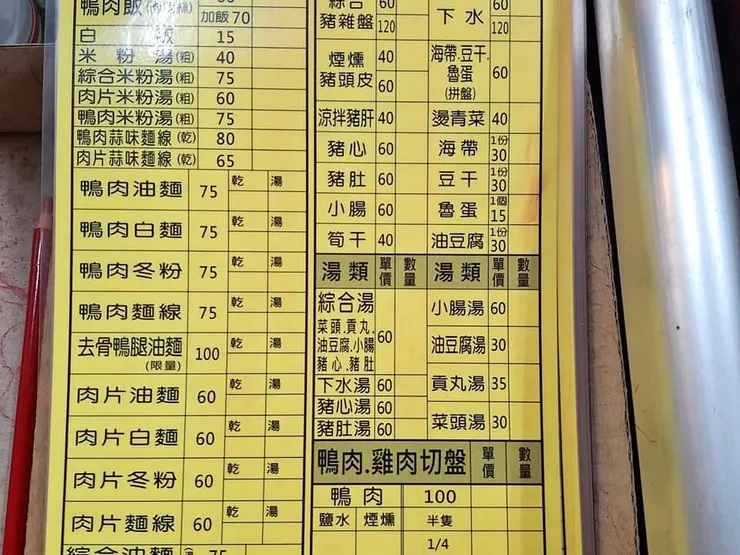 鴨肉飯
加飯 70
白飯 15
米粉湯(粗) 40
綜合米粉湯(粗) 75
肉片米粉湯(粗) 60
鴨肉米粉湯(粗) 75
鴨肉蒜味麵線(乾) 80
肉片蒜味麵線(乾) 65
鴨肉油麵 75 乾 湯
鴨肉白麵 75 乾 湯
鴨肉冬粉 75 乾 湯
鴨肉麵線 75 乾 湯
去骨鴨腿油麵 100 乾 湯
(限量)
肉片油麵 60 乾 湯
肉片白麵 60 乾 湯
肉片冬粉 60 乾 湯
肉片麵線 60 乾 湯
綜合油麵 75
綜合 60
豬雜盤 120
煙燻 40
豬頭皮 60
涼拌豬肝 40
豬心 60
豬肚 60
小腸 60
筍干 40
湯類 單價 數量
綜合湯
菜頭.貢丸.
油豆腐.小腸 60
豬心.豬肚
下水湯 60
豬心湯 60
豬肚湯 60
60
下水 120
海帶.豆干.
魯蛋 60
(拼盤)
燙青菜 40
海帶 1份 30
豆干 1份 30
魯蛋 1個 15
油豆腐 1份 30
湯類 單價 數量
小腸湯 60
油豆腐湯 30
貢丸湯 35
菜頭湯 30
鴨肉.雞肉切盤 單價 數量
鴨肉 100
鹽水 煙燻 半隻
1/4